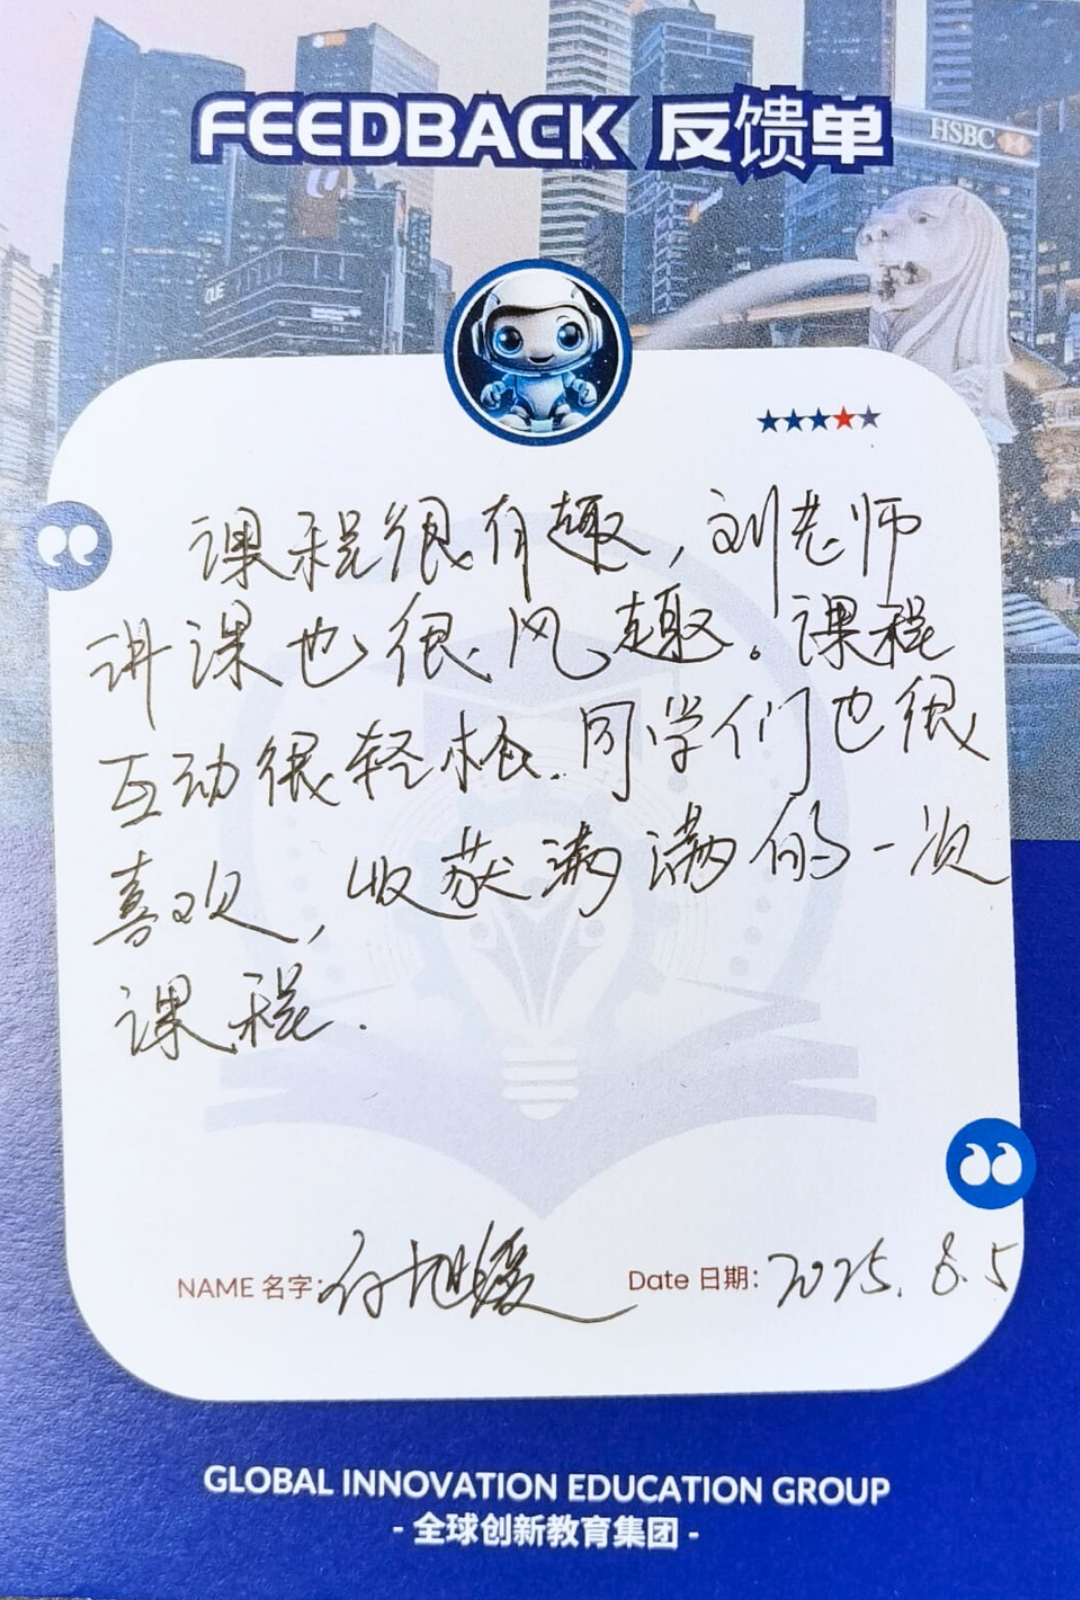 FEEDBACK 反馈单
HSBC
课程很有趣，刘老师
讲课也很风趣。课程
互动很轻松.同学们也很
喜欢，收获满满的一次
课程.
NAME 名字: Date 日期: 2025.8.5
GLOBAL INNOVATION EDUCATION GROUP
- 全球创新教育集团 -